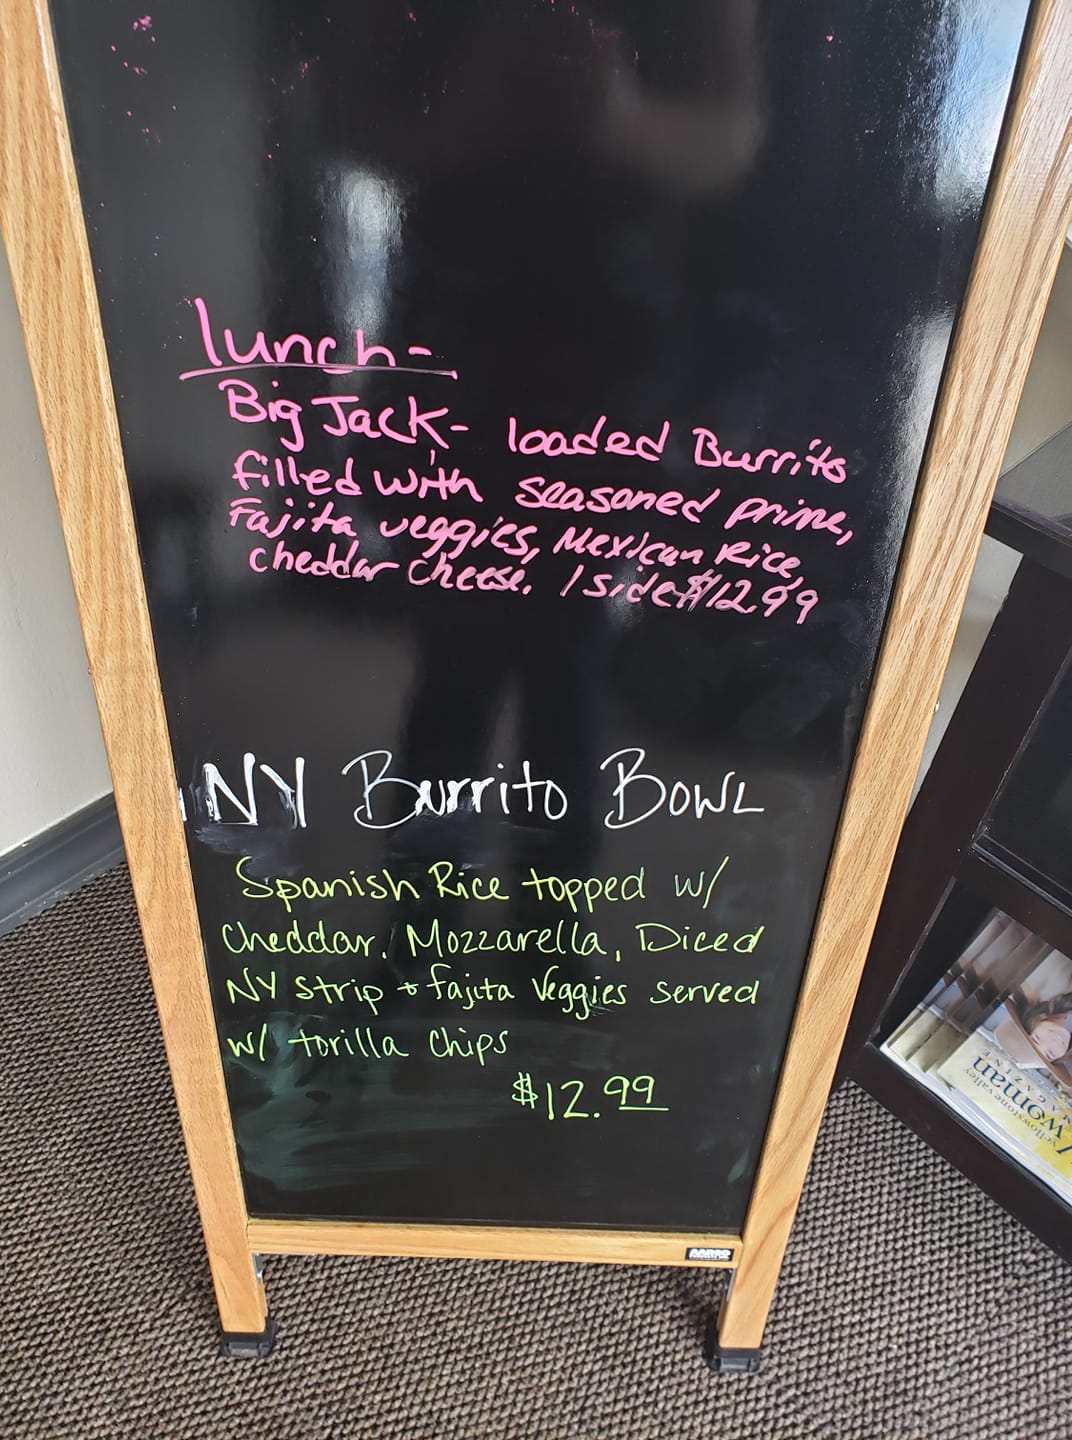 lunch-
Big Jack- loaded Burrito
filled with seasoned prime,
Fajita veggies, Mexican Rice,
cheddar cheese. 1 side $12.99
NY Burrito Bowl
Spanish Rice topped w/
Cheddar, Mozzarella, Diced
NY Strip + fajita Veggies served
w/ torilla chips
$12.99
AARCO
yellowstone valley
woman
MAGAZINE